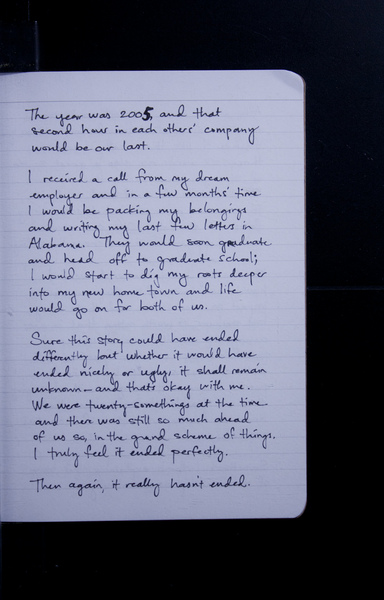 The year was 2005, and that
second hour in each others' company
would be our last.
I received a call from my dream
employer and in a few months' time
I would be packing my belongings
and writing my last few letters in
Alabama. They would soon graduate
and head off to graduate school;
I would start to dig my roots deeper
into my new home town and life
would go on for both of us.
Sure this story could have ended
differently but whether it would have
ended nicely or ugly, it shall remain
unknown – and that's okay with me.
We were twenty-somethings at the time
and there was still so much ahead
of us so, in the grand scheme of things,
I truly feel it ended perfectly.
Then again, it really hasn't ended.